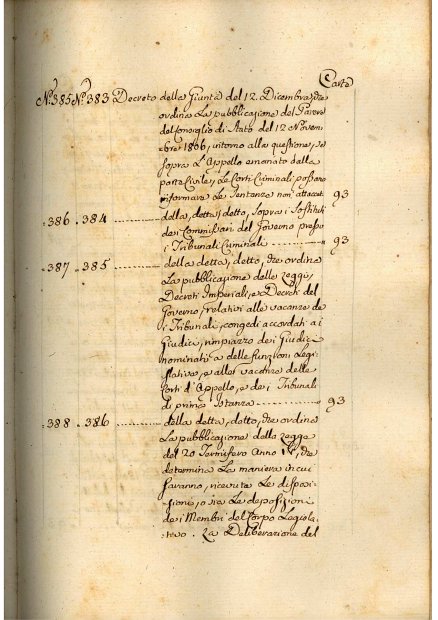 Carte
N.° 385 N.° 383 Decreto della Giunta del 12. Dicembre, che
ordina La pubblicazione del Parere
del Consiglio di Stato del 12 Novem-
bre 1806, intorno alla questione, se
sopra L'Appello emanato dalla
parte Civile, Le Corti Criminali possano
informare Le Sentenze non attaccate 93
386. 384 della, detta, detto, sopra i Sostituti
dei Commissari del Governo presso
i Tribunali Criminali 93
387. 385 della detta, detto, che ordina
La pubblicazione delle Leggi,
Decreti Imperiali, e Decreti del
Governo, relativi alle vacanze de
i Tribunali, congedi accordati ai
Giudici, rimpiazzo dei Giudici
nominati a delle funzioni Legi-
slative, e alle vacanze delle
Corti d'Appello, e dei Tribunali
di prima Istanza 93
388. 386 della detta, detto, che ordina
La pubblicazione della Legge
del 20 Termifero Anno IV, che
determina La maniera in cui
saranno, ricevute Le disposi-
zioni, o sia Le deposizioni
dei Membri del Corpo Legisla-
tivo. La Deliberazione del